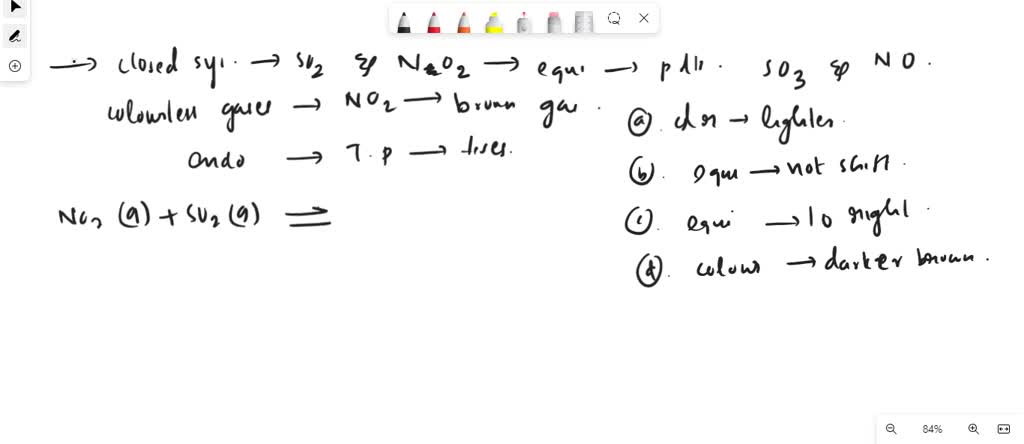 → closed sys. → SO2 & NO2 → equi → pdts. SO3 & NO.
colourless gases → NO2 → brown gas.
endo → T. P → tires.
NO2 (g) + SO2 (g) ⇌
(a). chr → lighter.
(b). equi → not shift.
(c). equi → to right.
(d). colour → darker brown.
84%